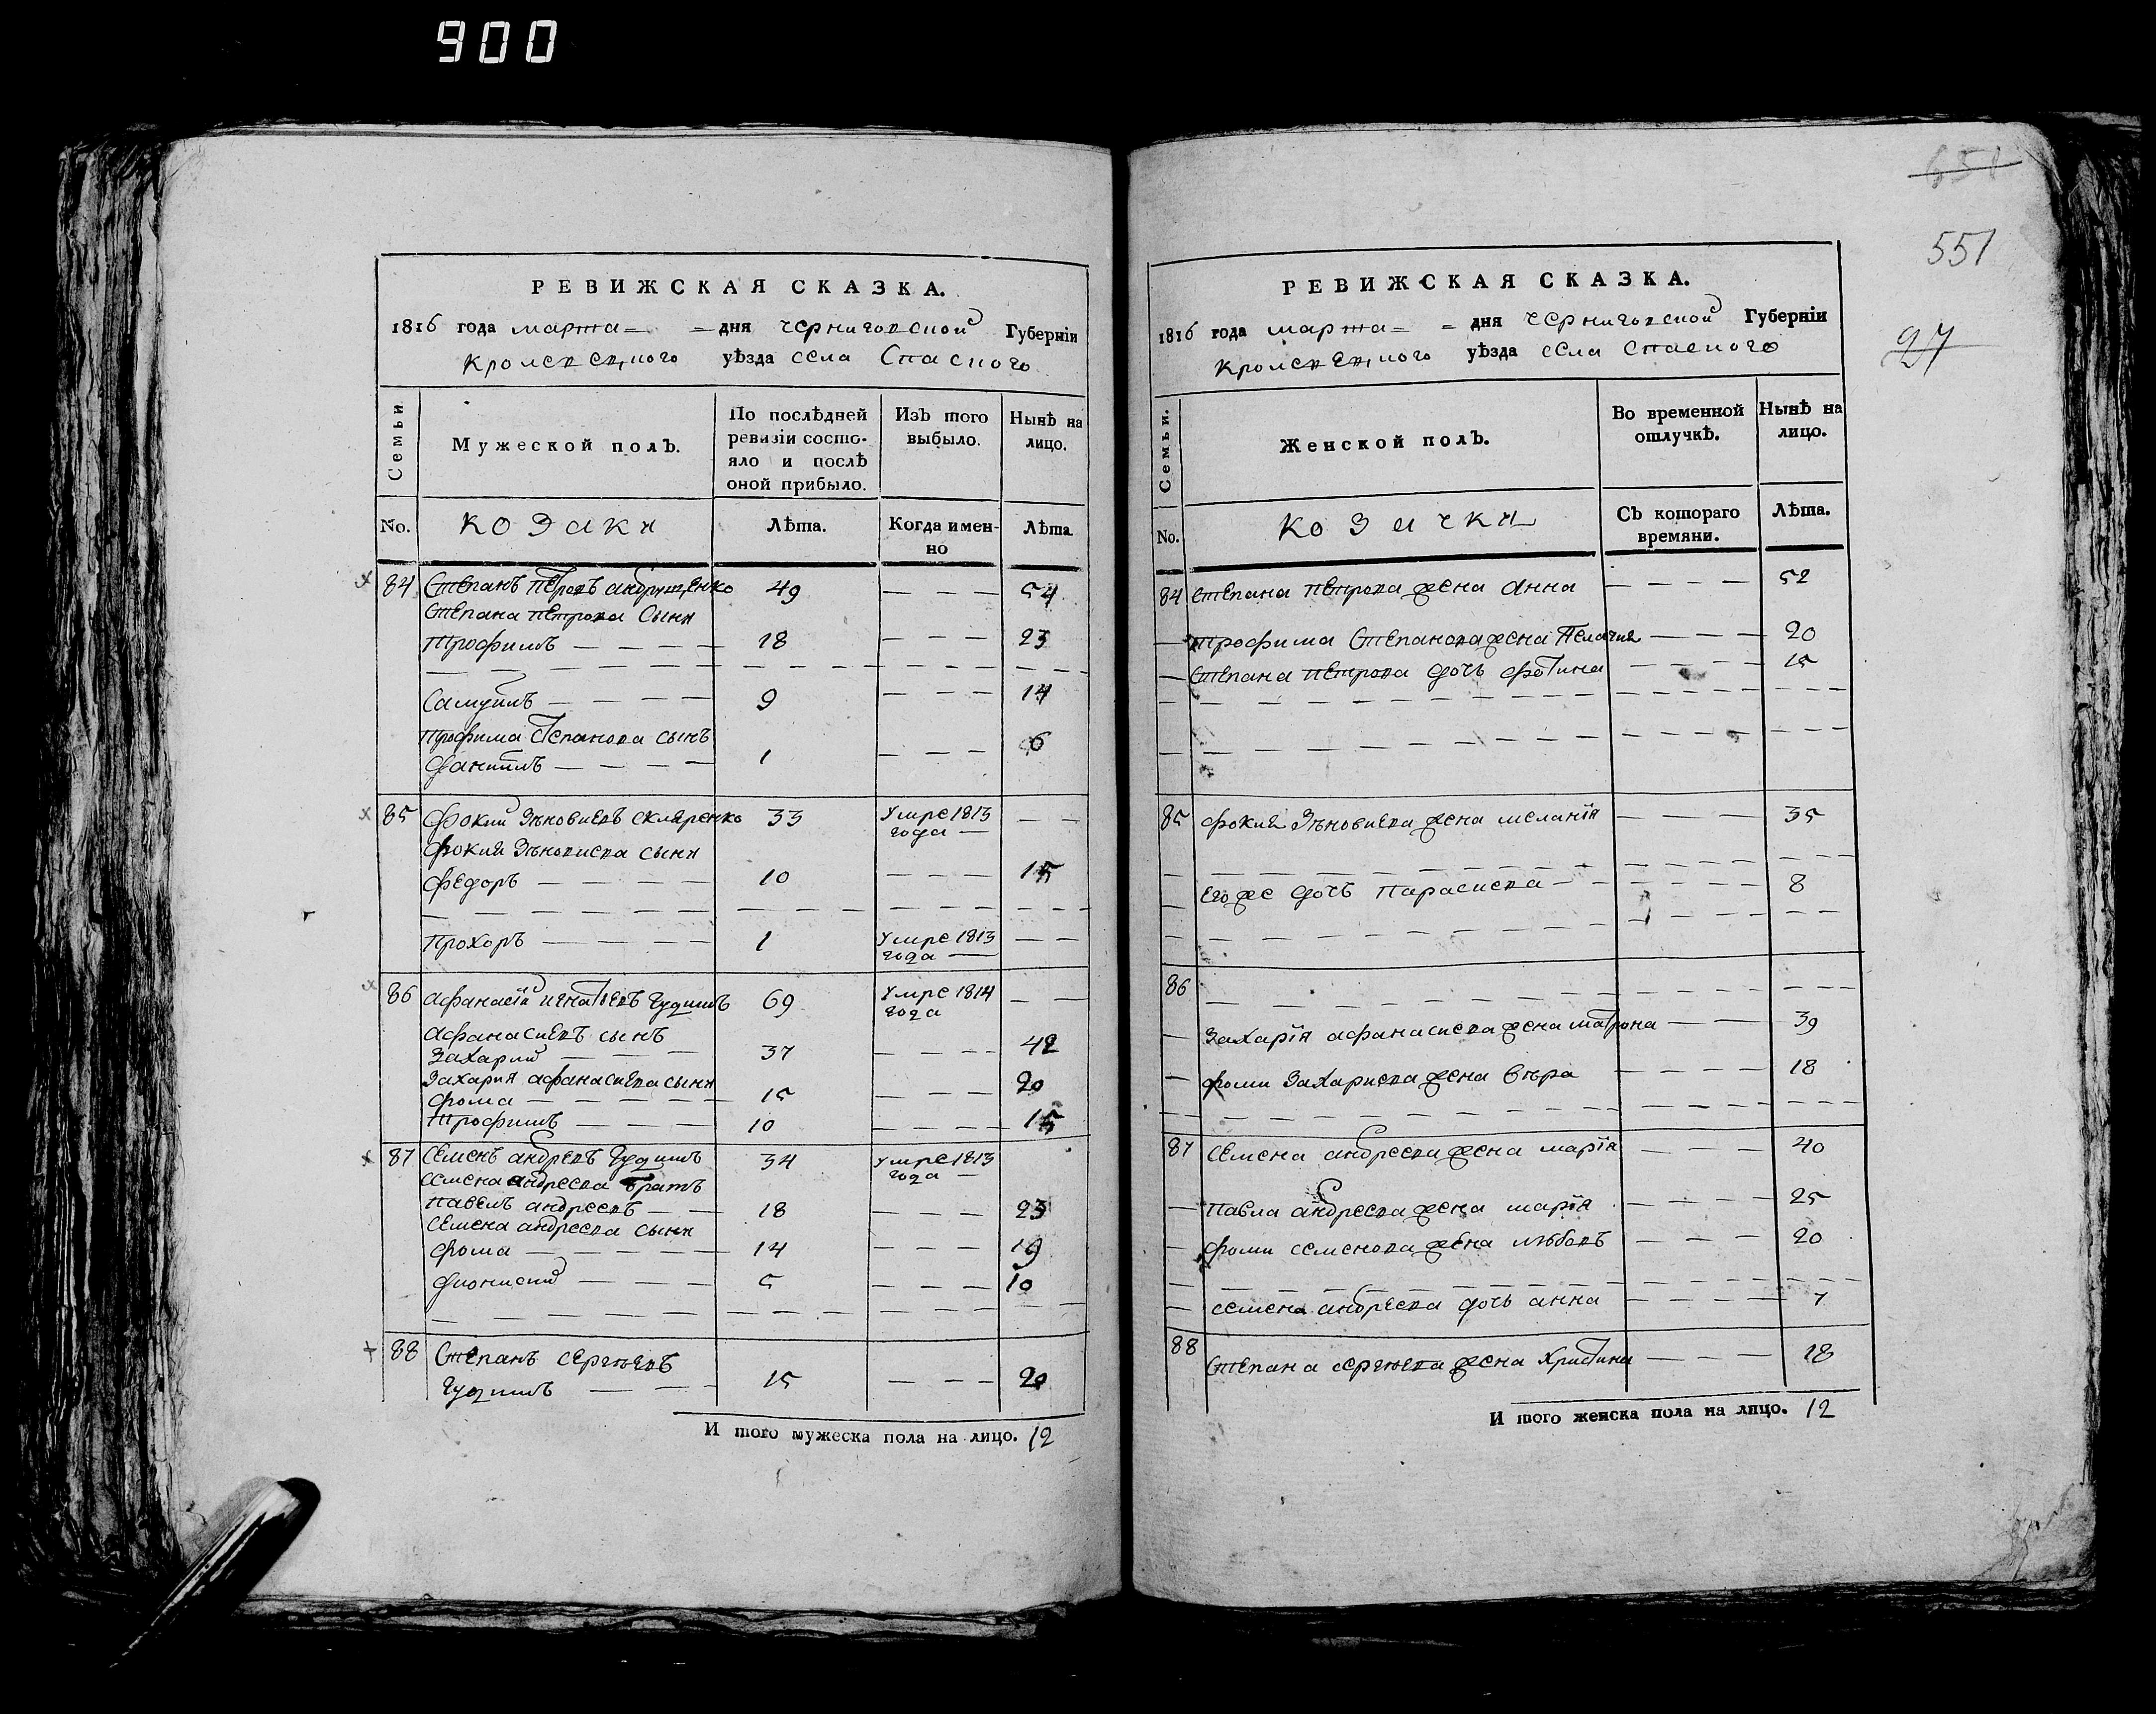 900
651
551
27
РЕВИЖСКАЯ СКАЗКА.
1816 года марта = = дня черниговской Губерніи
кролевецкого уѣзда села Спасного
Семьи
Мужеской полъ.
По послѣдней ревизіи состо-
яло и послѣ
оной прибыло.
Изъ того
выбыло.
Нынѣ на
лицо.
No.
козаки
Лѣта.
Когда имен-
но
Лѣта
84 Степанъ Петровъ андрущенко 49 — — — 54
Степана Петрова Сыни
Трофимъ — — — — 18 — — — 23
Самуилъ — — — — 9 — — — 14
Трофима Степанова сынъ
Даниилъ — — — — 1 — — — 6
85 Фокий Зѣновиевъ скляренко 33 Умре 1813 — —
года —
Фокия Зѣновиева сыни
Федоръ — — — — 10 — — — 15
Прохоръ — — — — 1 Умре 1813 — —
года —
86 Афанасій игнатиевъ Гудимъ 69 Умре 1814 — —
года
Афанасиевъ сынъ
Захарий — — — 37 — — — 42
Захария афанасиева сыни
Фома — — — — 15 — — — 20
Трофимъ — — — 10 — — — 15
87 Семенъ андреевъ Гудимъ 34 Умре 1813
года —
Семена андреева братъ
Павелъ андреевъ — — 18 — — — 23
Семена андреева сыни
Фома — — — — 14 — — — 19
Дионисий — — — 5 — — — 10
88 Степанъ сергѣевъ
Гудимъ — — — 15 — — — 20
И того мужеска пола на лицо. 12
РЕВИЖСКАЯ СКАЗКА.
1816 года марта = = дня черниговской Губерніи
кролевецкого уѣзда села Спасного
Семьи.
Женской полъ.
Во временной
отлучкѣ.
Нынѣ на
лицо.
No.
козачки
Съ котораго
времяни.
Лѣта.
84 Степана Петрова жена Анна — — — — 52
— Трофима Степанова жена Пелагия — — — 20
— Степана Петрова дочь Фотина — — — — 15
85 Фокия Зѣновиева жена меланія — — — 35
Его же дочь Парасиева — — — 8
86
— Захарія афанасиева жена матрона — — 39
— Фоми Захариева жена Вѣра — — — — 18
87 Семена андреева жена марія — — — 40
— Павла андреева жена марія — — — — 25
— Фоми семенова жена любовъ — — — 20
— семена андреева дочь анна — — — — 7
88 Степана сергѣева жена Христина — — — 18
И того женска пола на лицо. 12